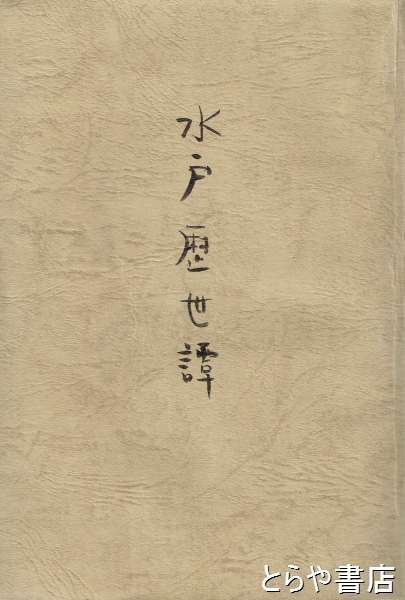 水戸歴世譚
とらや書店